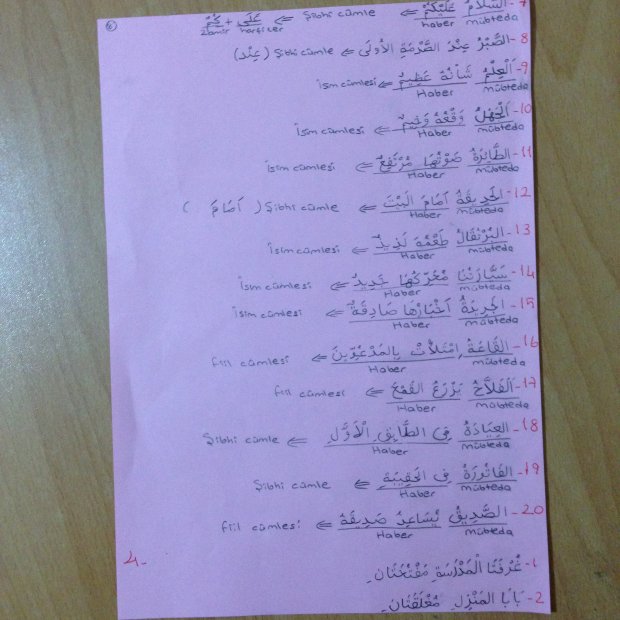 7- السَّلَامُ عَلَيْكُمْ ⇐ Şibhi cümle ⇐ عَلَى + كُمْ
mübteda haber harficer zamir
8- الصَّبْرُ عِنْدَ الصَّدْمَةِ الأُولَى ⇐ Şibhi cümle (عِنْدَ)
9- اَلْعِلْمُ شَأْنُهُ عَظِيمٌ ⇐ İsim cümlesi
mübteda Haber
10- اَلْجَهْلُ وَقْعُهُ وَخِيمٌ ⇐ İsim cümlesi
mübteda Haber
11- الطَّائِرَةُ صَوْتُهَا مُرْتَفِعٌ ⇐ İsim cümlesi
mübteda Haber
12- الحَدِيقَةُ أَمَامَ البَيْتَ ⇐ Şibhi cümle (أَمَامَ)
mübteda Haber
13- البُرْتُقَالُ طَعْمُهُ لَذِيذٌ ⇐ İsim cümlesi
mübteda Haber
14- سَيَّارَتُنَا مُحَرِّكُهَا جَدِيدٌ ⇐ İsim cümlesi
mübteda Haber
15- الجَرِيدَةُ أَخْبَارُهَا صَادِقَةٌ ⇐ İsim cümlesi
mübteda Haber
16- القَاعَةُ اِمْتَلَأَتْ بِالمَدْعُوِّينَ ⇐ fiil cümlesi
mübteda Haber
17- اَلْفَلَّاحُ يَزْرَعُ القَمْحَ ⇐ fiil cümlesi
mübteda Haber
18- العِيَادَةُ فِي الطَّابِقِ الْأَوَّلِ ⇐ Şibhi cümle
mübteda Haber
19- الفَاتُورَةُ فِي الحَقِيبَةِ ⇐ Şibhi cümle
mübteda Haber
20- الصَّدِيقُ يُسَاعِدُ صَدِيقَهُ ⇐ fiil cümlesi
mübteda Haber
4-
1- غُرْفَتَا الْمَدْرَسَةِ مَفْتُحَتَانِ.
2- بَابَا المَنْزِلِ مُغْلَقَتَانِ.